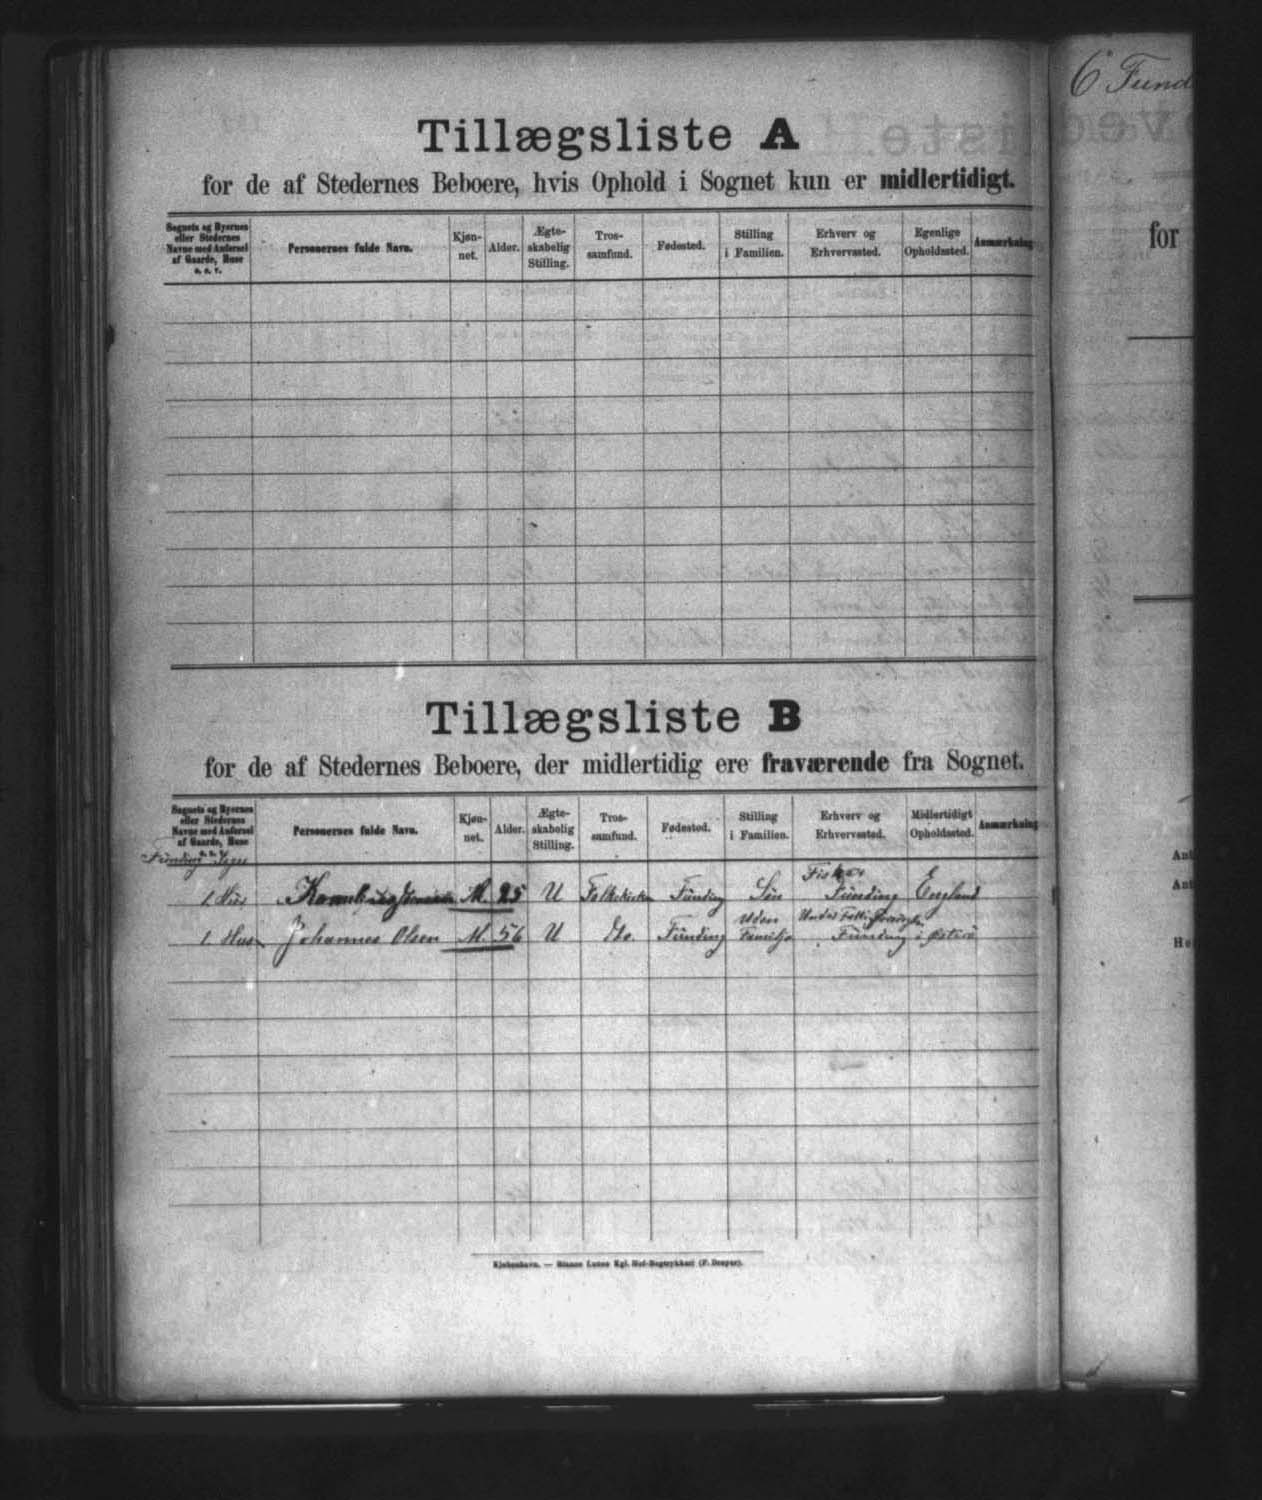 Tillægsliste A
for de af Stedernes Beboere, hvis Ophold i Sognet kun er midlertidigt.
Sognets og Byernes eller Stedernes Navne med Anførsel af Gaarde, Huse o. s. v.
Personernes fulde Navn.
Kjøn-net.
Alder.
Ægte-skabelig Stilling.
Tros-samfund.
Fødested.
Stilling i Familien.
Erhverv og Erhvervssted.
Egenlige Opholdssted.
Anmærkning
Tillægsliste B
for de af Stedernes Beboere, der midlertidig ere fraværende fra Sognet.
Sognets og Byernes eller Stedernes Navne med Anførsel af Gaarde, Huse o. s. v.
Personernes fulde Navn.
Kjøn-net.
Alder.
Ægte-skabelig Stilling.
Tros-samfund.
Fødested.
Stilling i Familien.
Erhverv og Erhvervssted.
Midlertidigt Opholdssted.
Anmærkning
Funding
1 Hus M. 25 U Folkekirken Funding Søn Fisker Funding England
1 Hus Johannes Olsen M. 56 U do. Funding Uden Familje Under Funding i Østerø
Kjøbenhavn. — Bianco Lunos Kgl. Hof-Bogtrykkeri (F. Dreyer).
6 Fund
for